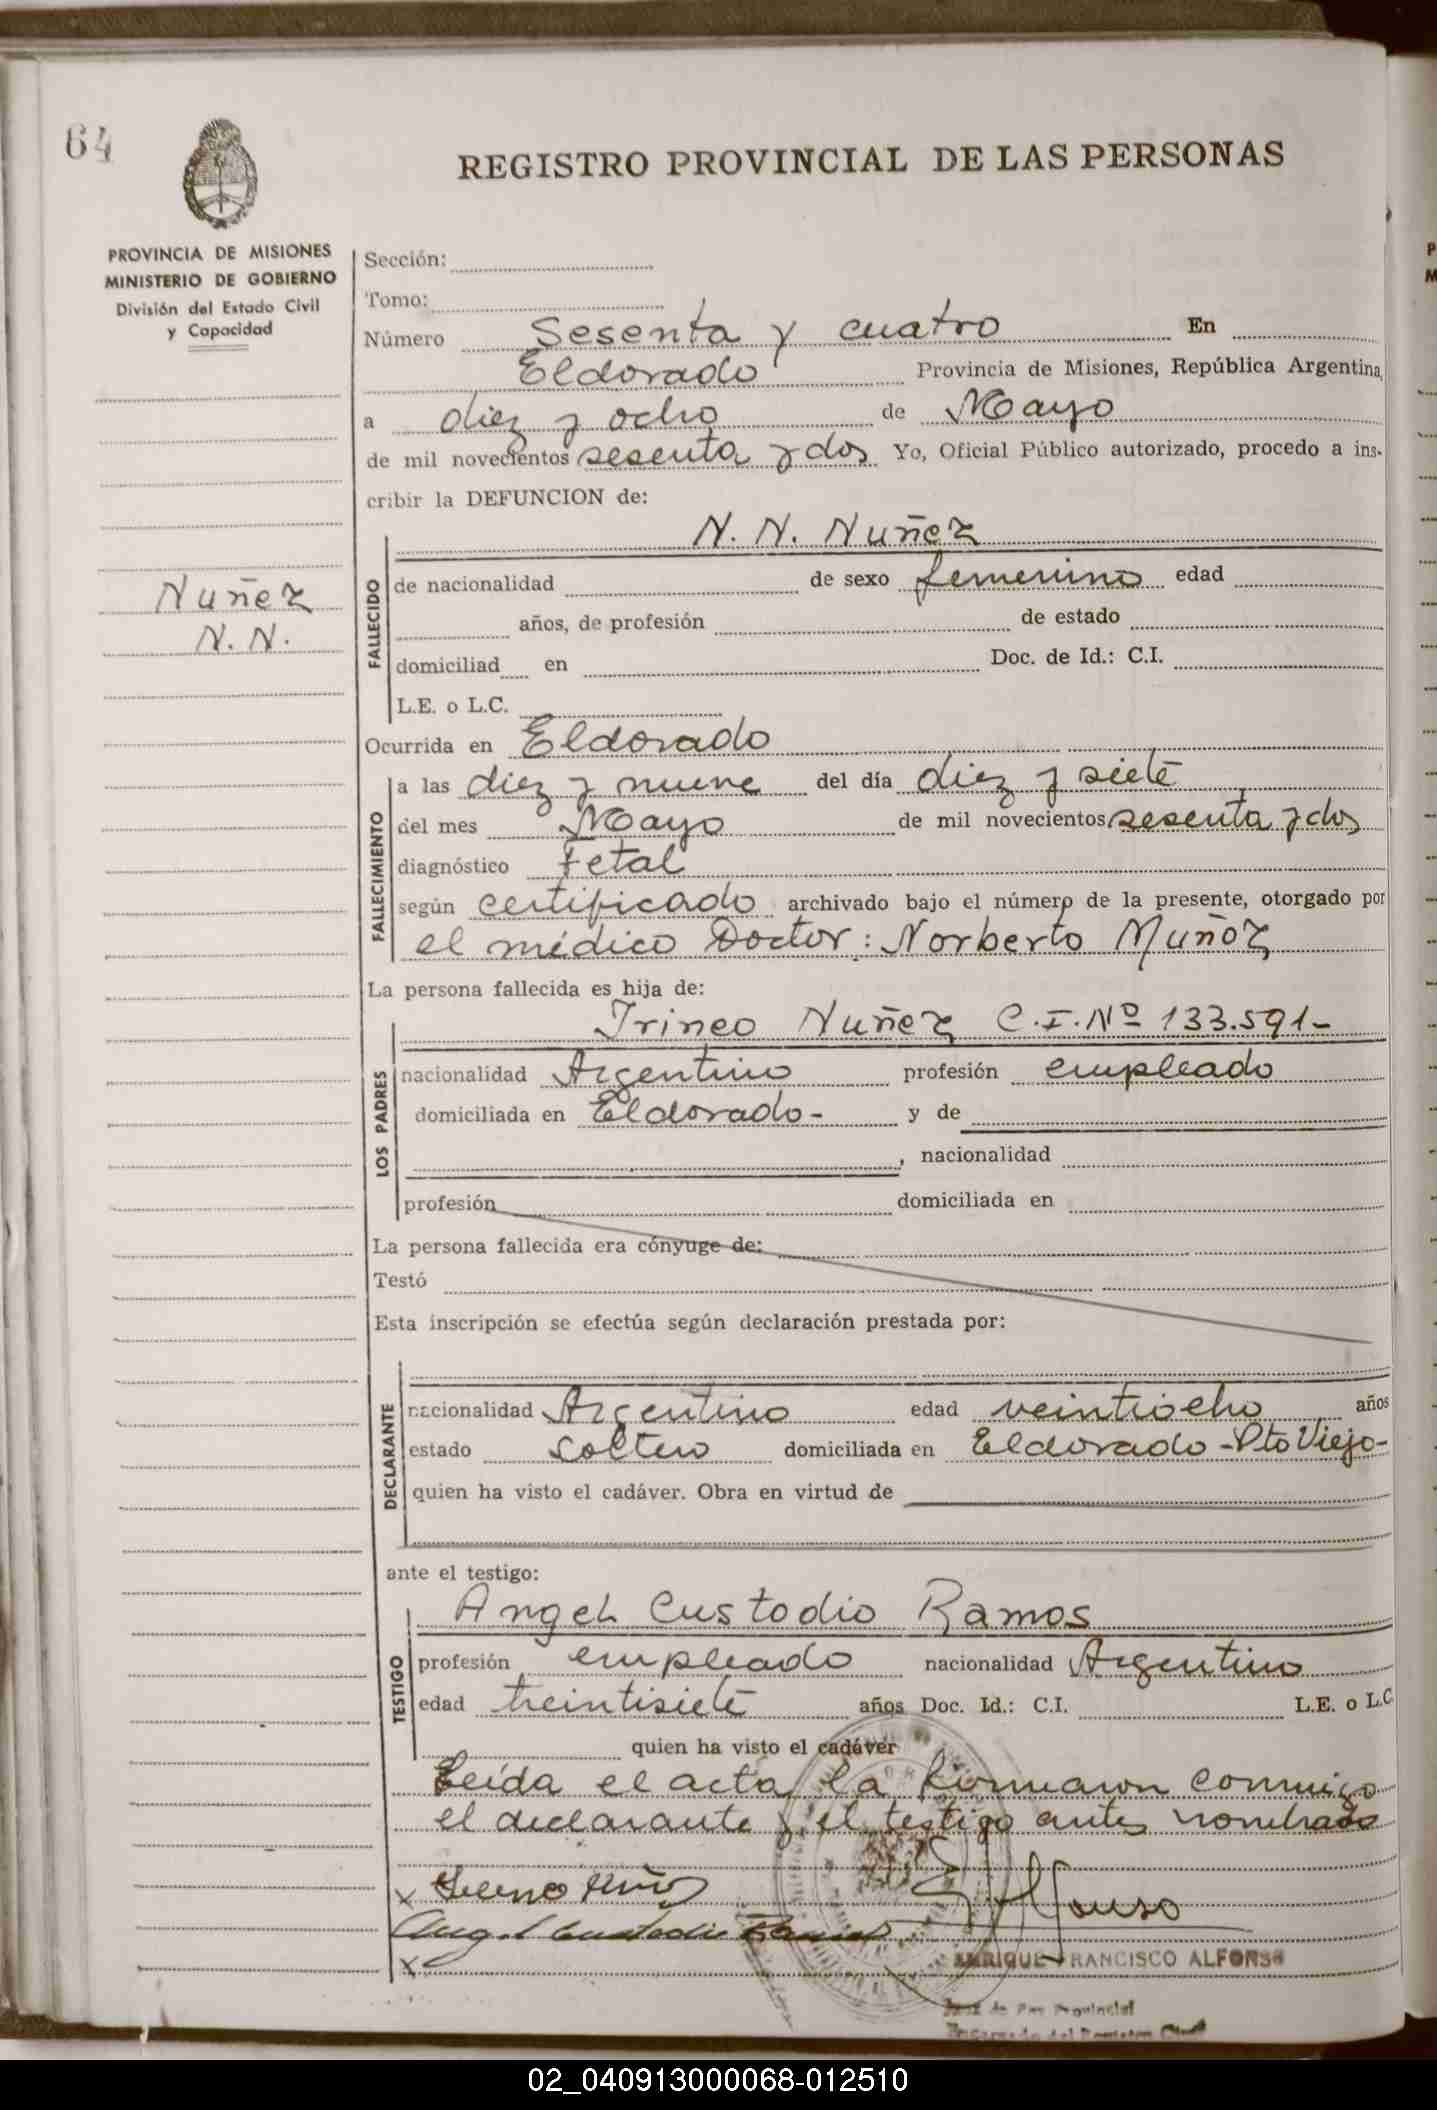 64
REGISTRO PROVINCIAL DE LAS PERSONAS
PROVINCIA DE MISIONES
MINISTERIO DE GOBIERNO
División del Estado Civil
y Capacidad
Nuñez
N. N.
Sección:
Tomo:
Número Sesenta y cuatro En
Eldorado Provincia de Misiones, República Argentina,
a diez y ocho de Mayo
de mil novecientos sesenta y dos Yo, Oficial Público autorizado, procedo a ins-
cribir la DEFUNCION de:
FALLECIDO
N. N. Nuñez
de nacionalidad de sexo femenino edad
años, de profesión de estado
domiciliad en Doc. de Id.: C.I.
L.E. o L.C.
Ocurrida en Eldorado
FALLECIMIENTO
a las diez y nueve del día diez y siete
del mes Mayo de mil novecientos sesenta y dos
diagnóstico Fetal
según certificado archivado bajo el número de la presente, otorgado por
el médico Doctor: Norberto Muñoz
La persona fallecida es hija de:
LOS PADRES
Irineo Nuñez C.I. Nº 133.591-
nacionalidad Argentino profesión empleado
domiciliada en Eldorado- y de
, nacionalidad
profesión domiciliada en
La persona fallecida era cónyuge de:
Testó
Esta inscripción se efectúa según declaración prestada por:
DECLARANTE
nacionalidad Argentino edad veintiocho años
estado soltero domiciliada en Eldorado - Pto Viejo-
quien ha visto el cadáver. Obra en virtud de
ante el testigo:
TESTIGO
Angel Custodio Ramos
profesión empleado nacionalidad Argentino
edad treintisiete años Doc. Id.: C.I. L.E. o L.C.
quien ha visto el cadáver
Leída el acta, la firmaron conmigo
el declarante y el testigo antes nombrado
x
Angel Custodio Ramos
x
ENRIQUE FRANCISCO ALFONSO
Juez de Paz Provincial
Encargado del Registro Civil
02_040913000068-012510